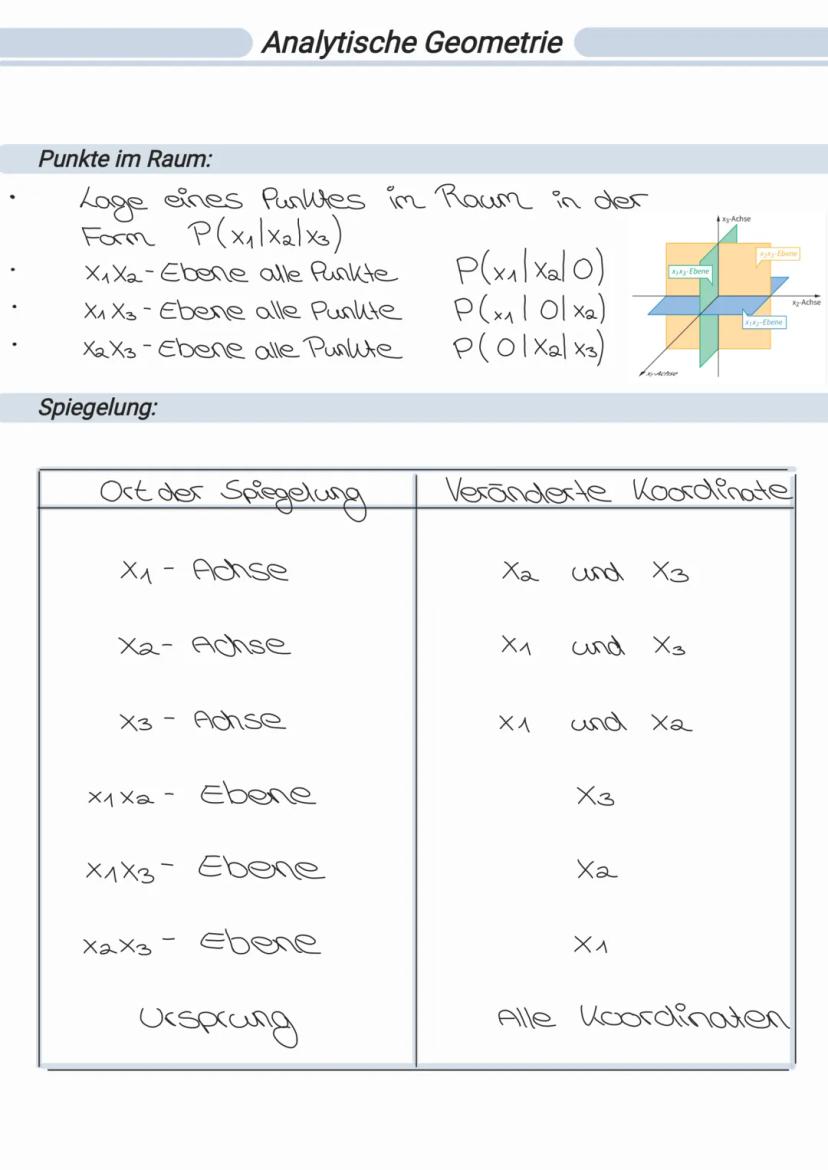 Analytische Geometrie
Punkte im Raum:
• Lage eines Punktes im Raum in der
Form P(x₁|x₂|x₃)
• x₁x₂-Ebene alle Punkte P(x₁|x₂|0)
• x₁x₃-Ebene alle Punkte P(x₁|0|x₂)
• x₂x₃-Ebene alle Punkte P(0|x₂|x₃)
x₃-Achse
x₂x₃-Ebene
x₁x₃-Ebene
x₂-Achse
x₁x₂-Ebene
x₁-Achse
Spiegelung:
Ort der Spiegelung Veränderte Koordinate
x₁ - Achse x₂ und x₃
x₂ - Achse x₁ und x₃
x₃ - Achse x₁ und x₂
x₁x₂ - Ebene x₃
x₁x₃ - Ebene x₂
x₂x₃ - Ebene x₁
Ursprung Alle Koordinaten